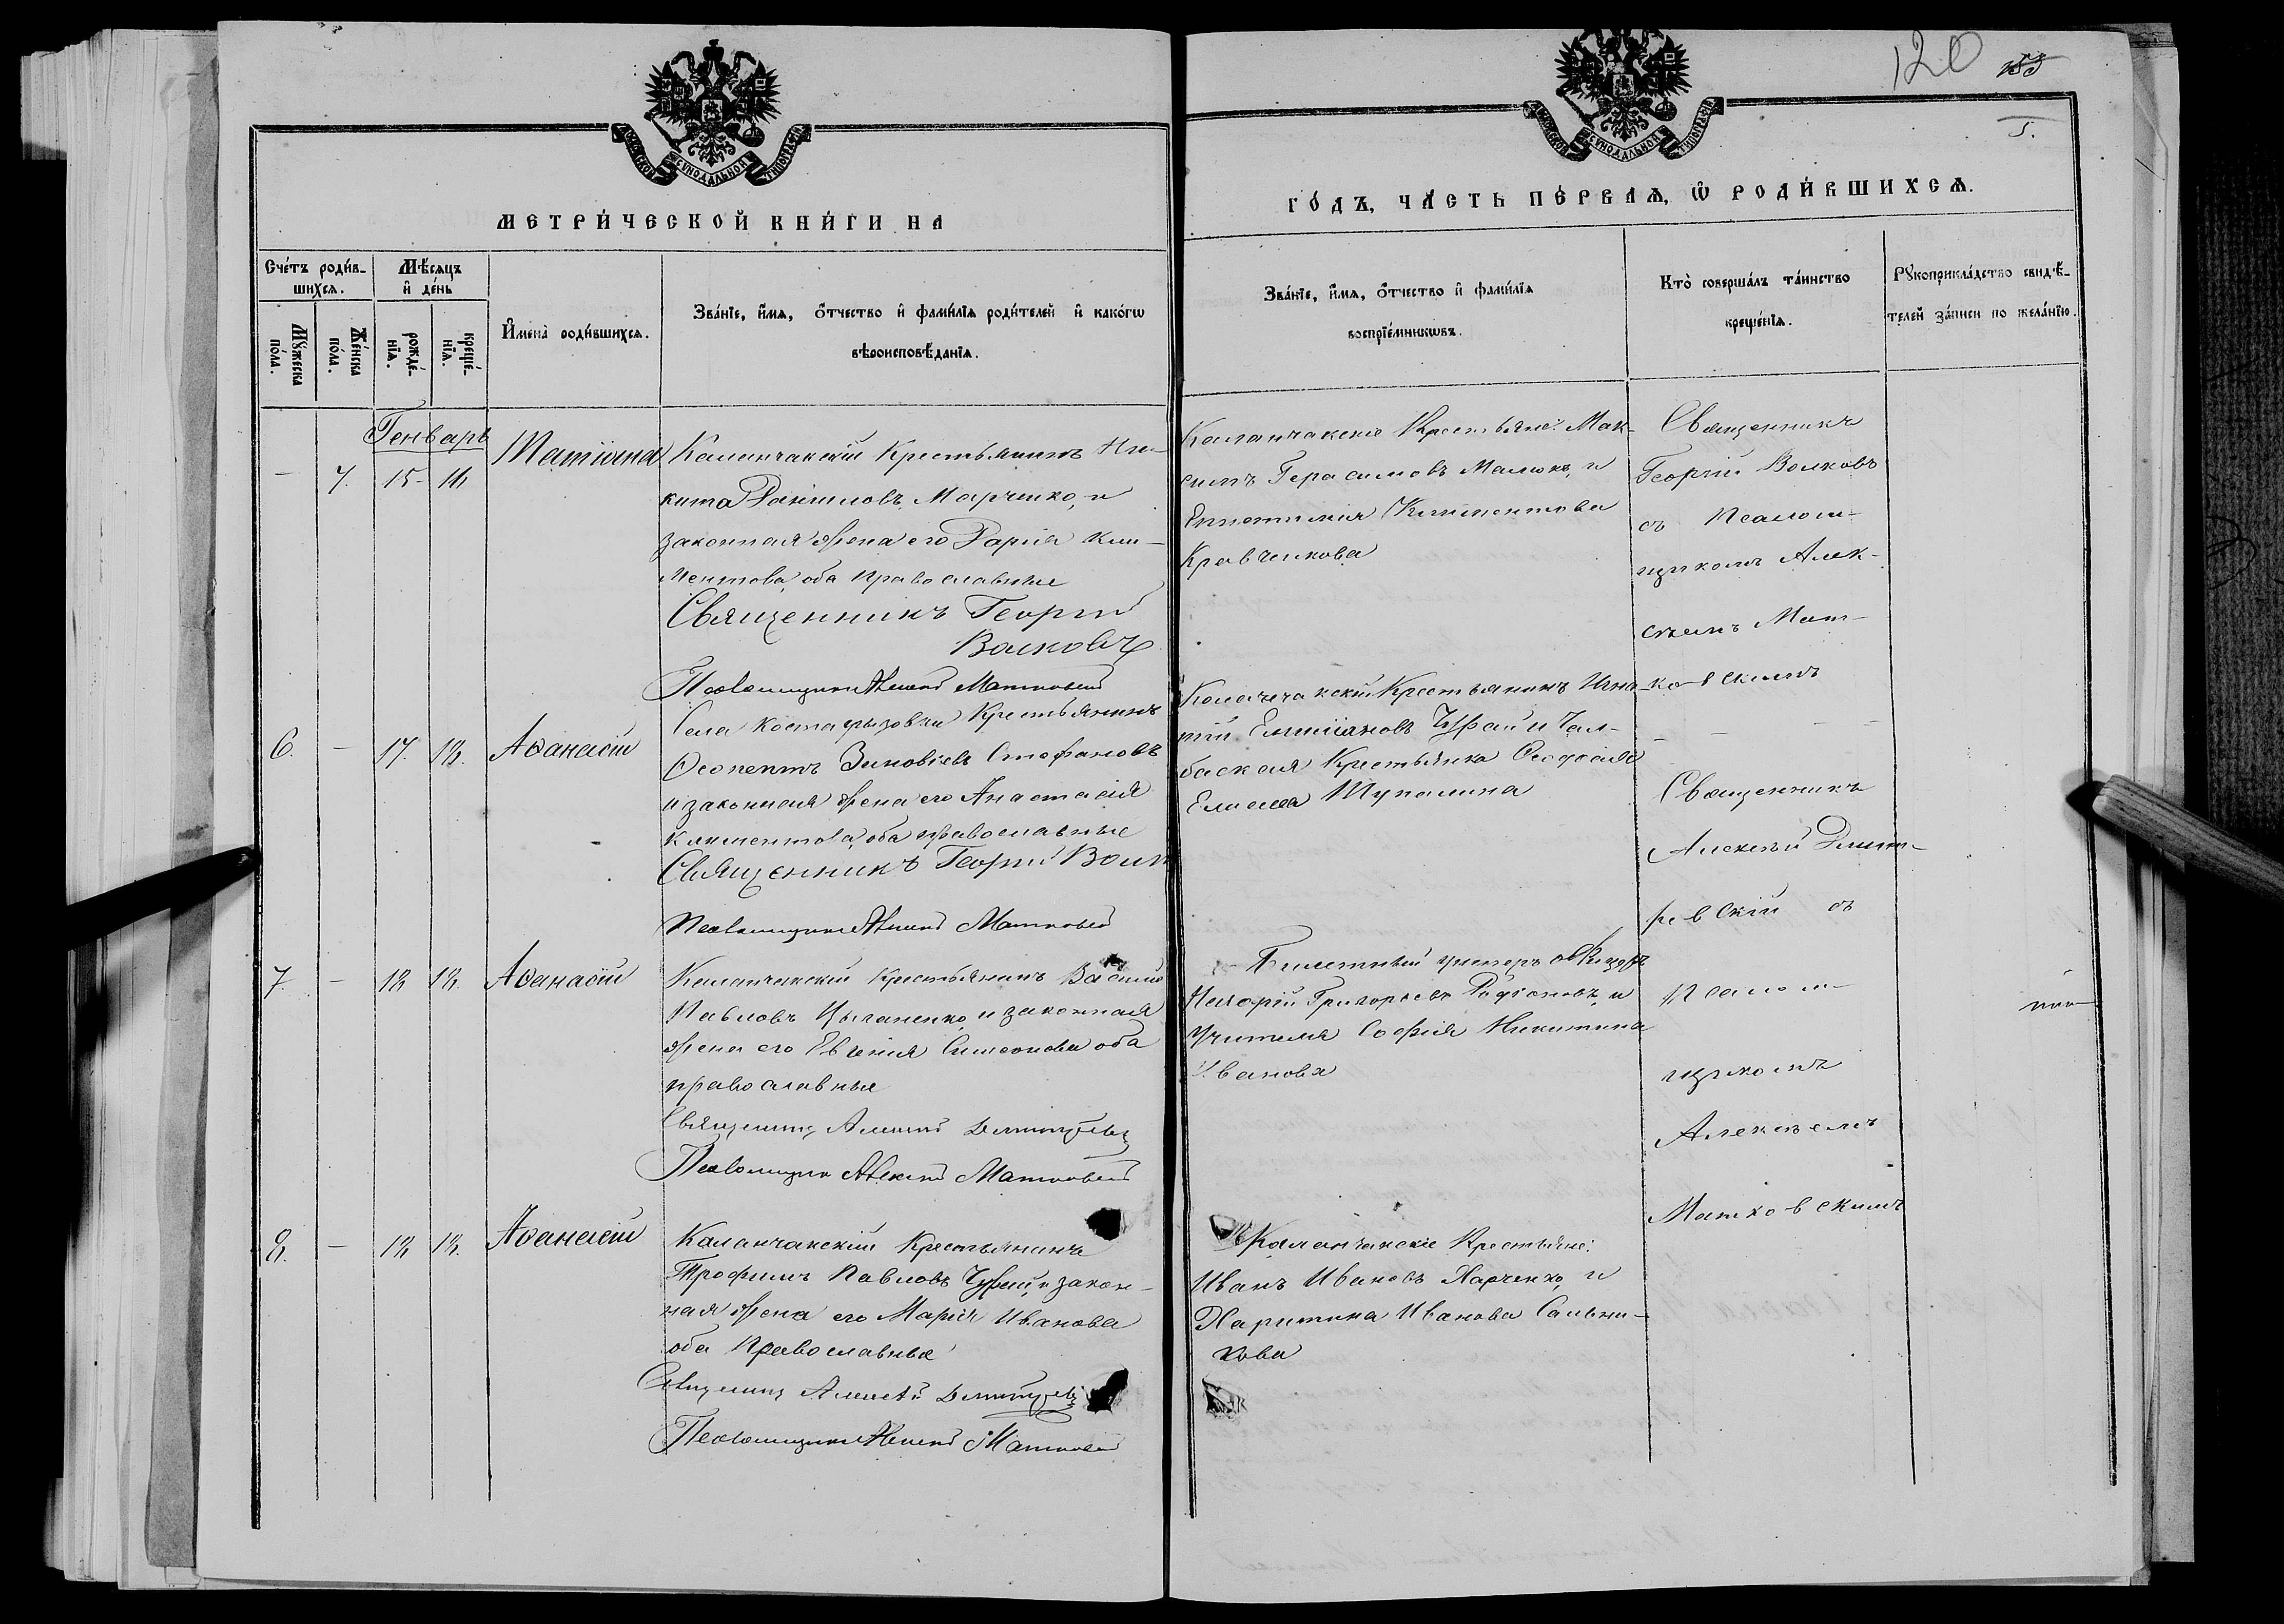 120
5.
МЕТРИ́ЧЕСКОЙ КНИ́ГИ НА
ГО́ДЪ, ЧА́СТЬ ПЕ́РВАЯ, Ѡ РОДИ́ВШИХСЯ.
Сче́тъ роди́в-
шихся.
Му́жеска по́ла.
Же́нска по́ла.
Мѣ́сяцъ
и де́нь
рожде́-
нїя.
креще́-
нїя.
Имена̀ роди́вшихся.
Зва́нїе, и́мя, о́тчество и фами́лїя роди́телей и како́гѡ
вѣроисповѣ́данїя.
Зва́нїе, и́мя, о́тчество и фами́лїя
воспрїе́мникѡвъ.
Кто̀ соверша́лъ та́инство
креще́нїя.
Рꙋкоприкла́дство свидѣ́-
телей за́писи по жела́нїю.
Генварь
— 7. 15 16 Татіана
Каланчакскій Крестьянинъ Ни-
кита Даниловъ Марченко, и
законная жена его Дарія Кли-
ментова, оба православные
Священникъ Георгій
Волковъ
Псаломщикъ Алексій Матковскій
Каланчакскіе Крестьяне: Мак-
симъ Герасимовъ Малюкъ, и
Климентова
Кравченкова
Священникъ
Георгій Волковъ
съ Псалом-
щикомъ Алек-
сѣемъ Мат-
ковскимъ
6. — 17. 18. Аѳанасій
Села Костогрызовки Крестьянинъ
Зиновіевъ Стефановъ
и законная жена его Анастасія
Климентова, оба православные
Священникъ Георгій Волк
Псаломщикъ Алексій Матковскій
Каланчакскій Крестьянинъ Игна-
тій Чуфай и Чал-
баская Крестьянка Ѳеодосія
Шупалина
Священникъ
Алексѣй Дмит-
ревскій съ
Псалом-
щикомъ
Алексѣемъ
Матковскимъ
7. — 18 18. Аѳанасій
Каланчакскій Крестьянинъ Василій
Павловъ Цыганенко, и законная
жена его Евгенія Симеонова оба
православные
Священникъ Алексѣй Дмитревскій
Псаломщикъ Алексій Матковскій
Билетный унтеръ офицеръ
Григорьевъ Родіоновъ, и
Учителя Софія Никитина
Иванова
8. — 18 18. Аѳанасій
Каланчакскій Крестьянинъ
Трофимъ Павловъ Чуфай, и закон-
ная жена его Марія Иванова
оба Православные
Священникъ Алексѣй Дмитревскій
Псаломщикъ Алексій Матковскій
Каланчакскіе Крестьяне:
Иванъ Ивановъ Харченко, и
Харитина Иванова Сальни-
кова